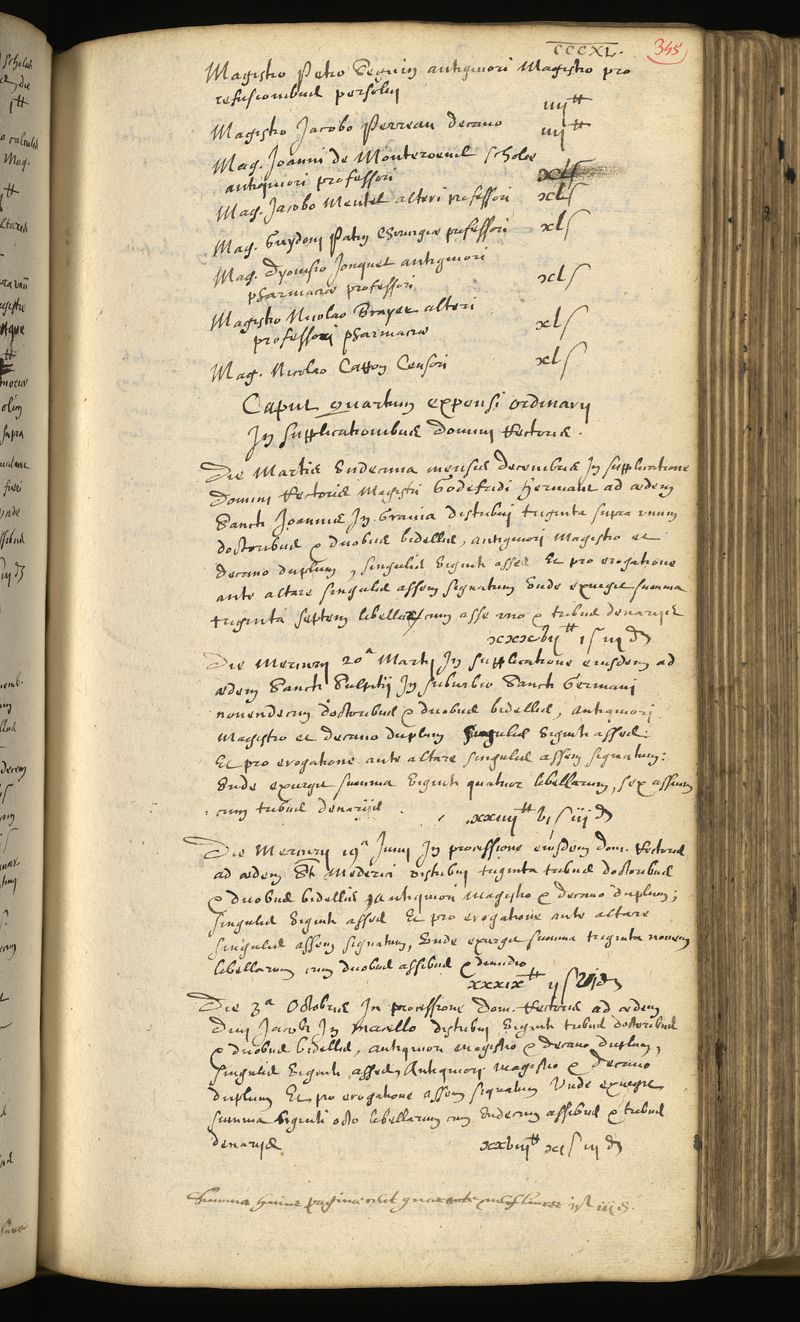 CCCXL. 345
Magistro Petro Seguin antiquiori Magistro pro
refusionibus persolvi iiij ₶
Magistro Jacobo Perreau decano iiij ₶
Mag. Joanni de Montereuil scholæ
antiquiori professori xl ſ
Mag. Jacobo Mentel alteri professori xl ſ
Mag. Guydoni Patin Chirurgiæ professori xl ſ
Mag. Dyonisio Jonquet antiquiori
pharmaciæ professori xl ſ
Magistro Nicolao Brayer alteri
professori pharmaciæ xl ſ
Mag. Nicolao Catton Censori xl ſ
Caput quartum expensi ordinarij
In supplicationibus Domini Rectoris.
Die Martis undecima mensis decembris In supplicatione
Domini Rectoris Magistri Godefridi hermant ad ædem
Sancti Joannis In Gravia distribui triginta supra unum
doctoribus & duobus bidellis, antiquiori Magistro et
decano duplum, singulis viginti asses Et pro erogatione
ante altare singulis assem signatum Unde exurgit summa
triginta septem libellarum cum asse uno & tribus denarijs
xxxvij ₶ j ſ iij d
Die Mercurij 20ª Martij In supplicatione eiusdem ad
ædem Sancti Sulpitij In suburbio Sancti Germani
novendecim doctoribus & duobus bidellis, antiquiori
Magistro et decano duplum singulis viginti asses.
Et pro erogatione ante altare singulis assem signatum:
Unde exurgit summa viginti quatuor libellarum, sex assium
cum tribus denarijs xxiiij ₶ vj ſ iij d
Die Mercurij 19ª Junij In processione eiusdem Dom. Rectoris
ad ædem Sti Mederici distribui triginta tribus doctoribus
& duobus bidellis, antiquiori magistro & decano duplum;
singulis viginti asses Et pro erogatione ante altare
singulis assem signatum, Unde exurgit summa triginta novem
libellarum cum duobus assibus & dimidio
xxxix ₶ ij ſ vj d
Die 3ª Octobris In processione Dom. Rectoris ad ædem
Divi Jacobi In macello distribui viginti tribus doctoribus
& duobus bidellis, antiquiori magistro & decano duplum,
singulis viginti asses, Antiquiori magistro & decano
duplum Et pro erogatione assem signatum Unde exurgit
summa viginti octo libellarum cum undecim assibus & tribus
denarijs xxviij ₶ xj ſ iij d
Summa huius paginæ